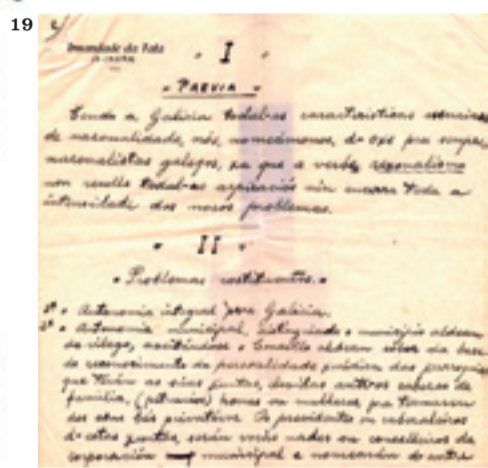 19
Irmandade da Fala
I
- PREVIA -
Tendo a Galicia todal-as caracteristicas esenciaes
de nazonalidade, nós, nomeámonos, d-oxe pra sempre,
nazonalistas galegos, xa que a verba rexonalismo
non recolle todal-as aspiraciós nin encerra toda a
intensidade dos nosos problemas.
II
Problemas costituintes.
1º Autonomia integral pra Galicia.
2º Autonomia municipal, o municipio aldean
do vilego, o Concello aldean sobor da base
do reconocimento da personalidade xuridica das parroquias
que terán as suas xuntas, d'antigos cabezas de
familia, (petrucios) homes ou mulleres, pra
dos seus bés privativos. Os presidentes
d-estas xuntas, serán conselleiros da
corporación municipal e nomearán